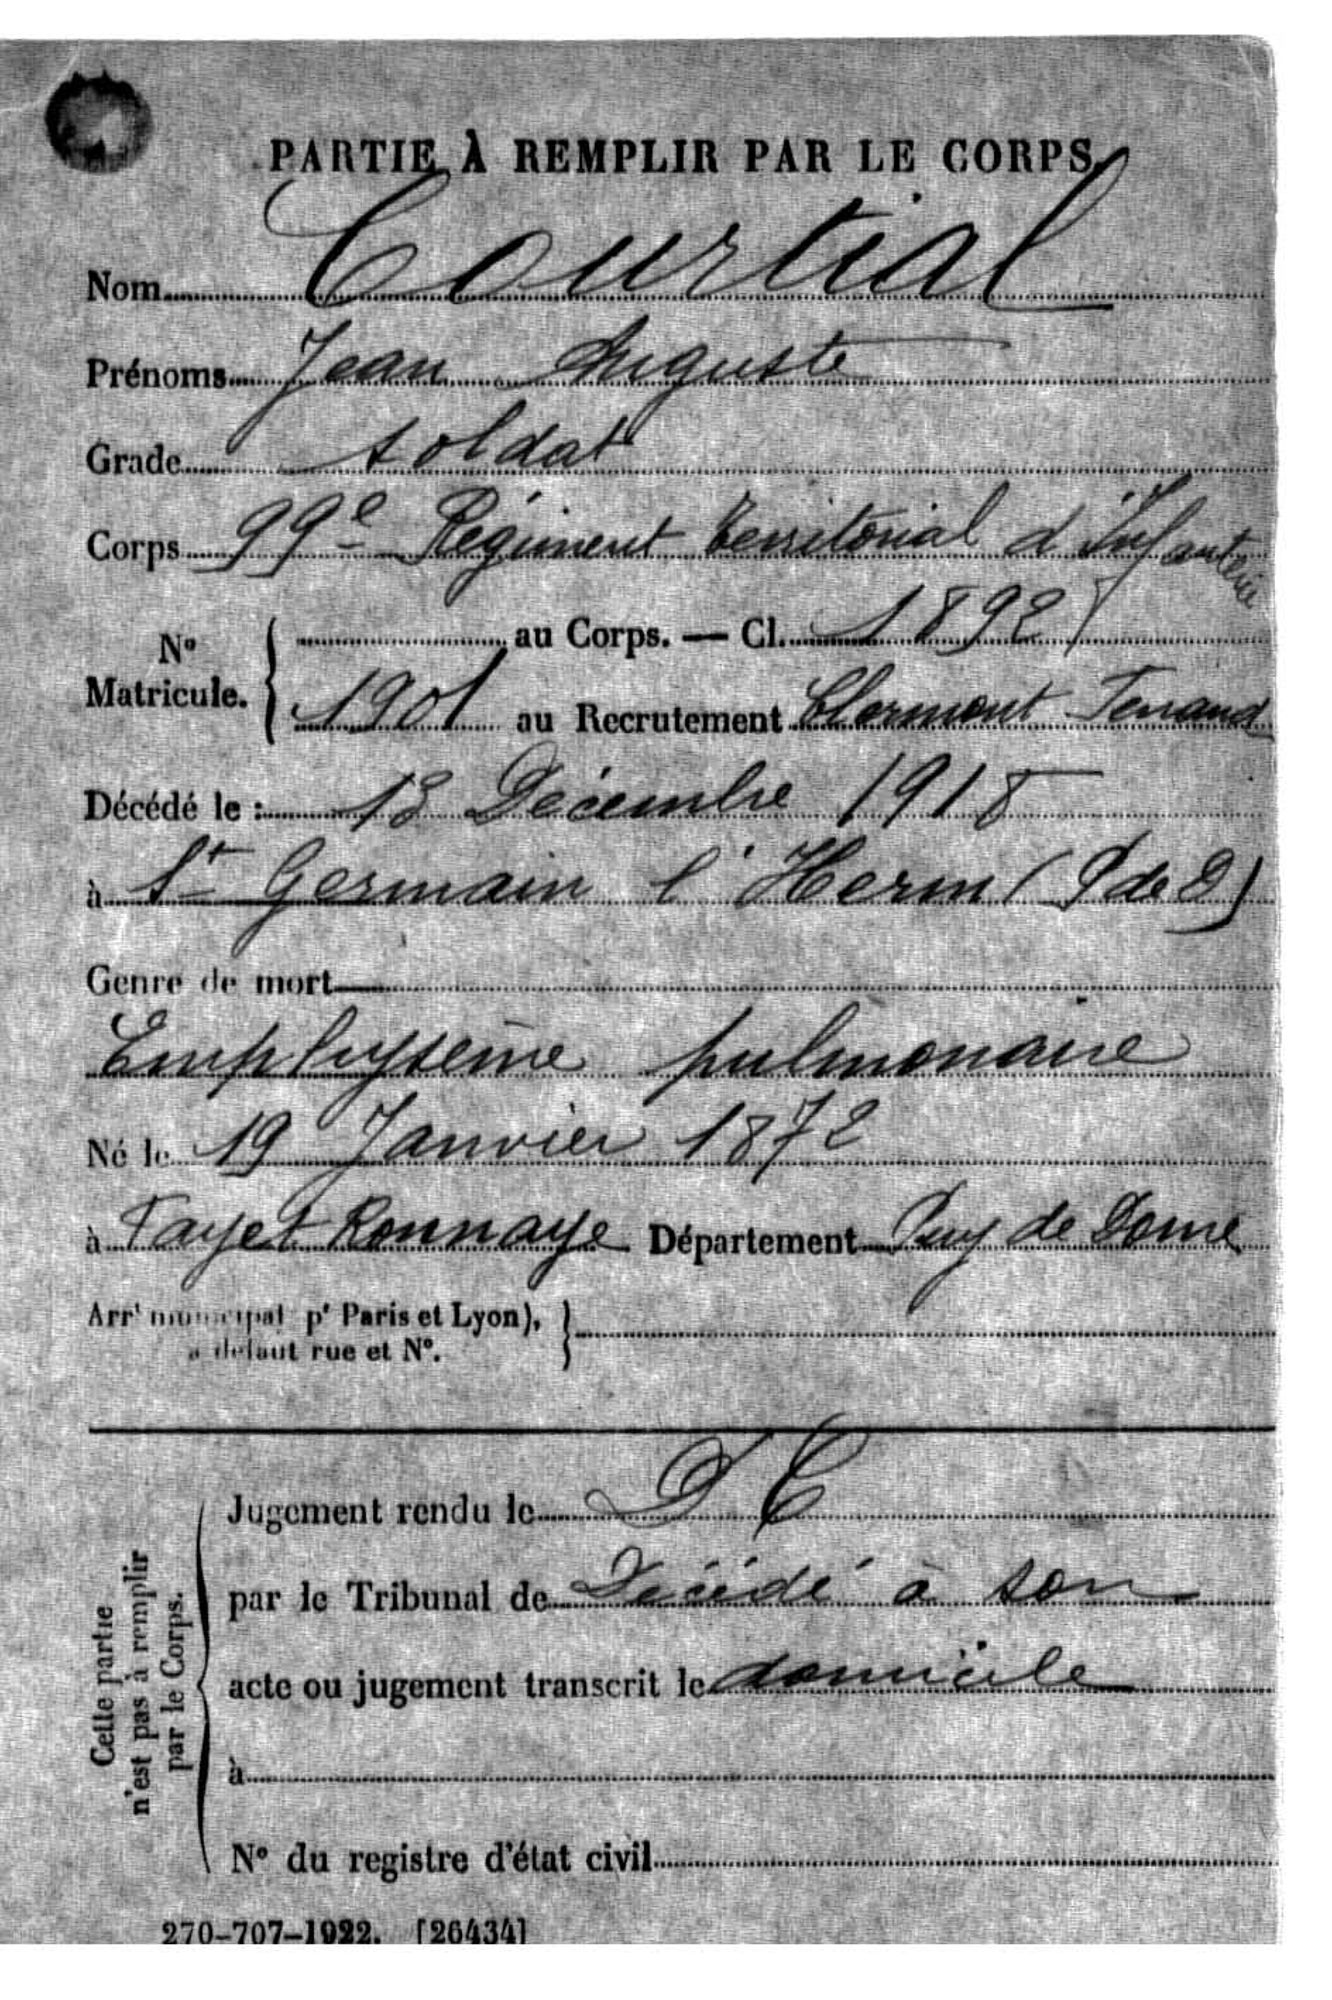 PARTIE À REMPLIR PAR LE CORPS
Nom Courtial
Prénoms Jean Auguste
Grade soldat
Corps 99e Régiment territorial d'Infanterie
No Matricule. { au Corps. — Cl. 1892
1901 au Recrutement Clermont Ferrand
Décédé le : 13 Décembre 1918
à St Germain l'Herm (P de D)
Genre de mort
Emphysème pulmonaire
Né le 19 Janvier 1872
à Fayet Ronnaye Département Puy de Dome
Arrt municipal pr Paris et Lyon), }
à défaut rue et No.
Cette partie n'est pas à remplir par le Corps.
Jugement rendu le D C
par le Tribunal de Décédé à son
acte ou jugement transcrit le domicile
à
No du registre d'état civil
270-707-1922. [26434]